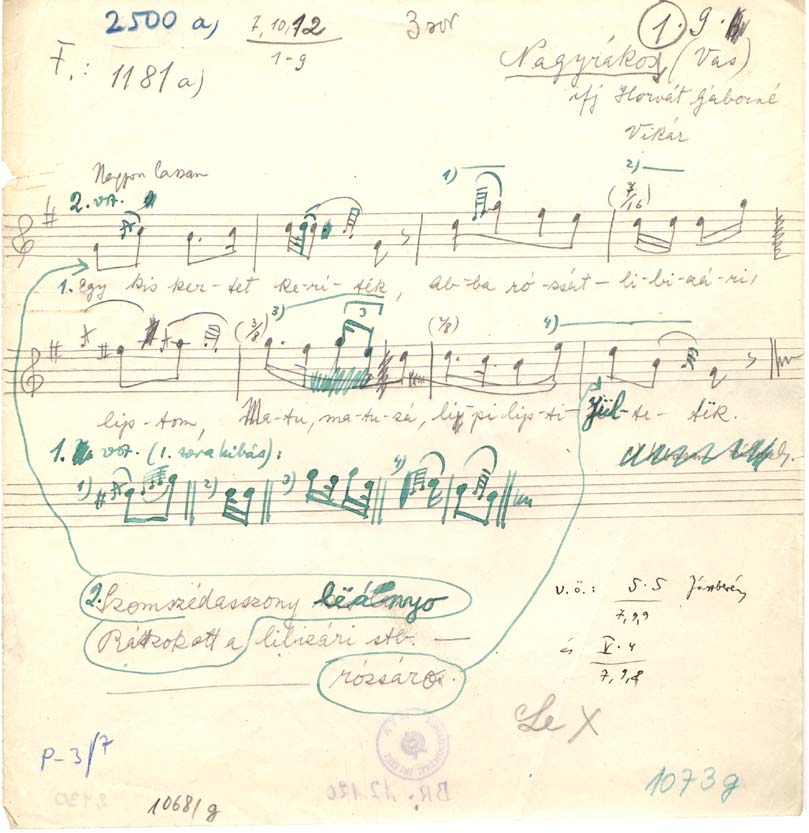 2500 a)
7, 10, 12
1-9
3 sor
1. g.
F.: 1181 a)
Nagyrákos, (Vas)
ifj Horvát Gáborné
Vikár
Nagyon lassan
2. vsz.
1)
2)
(7/16)
1. Egy kis ker-tet ke-rí-ték, ab-ba ró-zsát-li-bi-zá-ri,
(3/8) 3) 3 (7/8) 4)
lip-tom, Ma-tu, ma-tu-zá, lip pi lip-ti- Jül-te-ték.
1. vsz. (1. sora hibás):
1) 2) 3) 4)
2. Szomszédasszony lëányo
Rászokott a libizári stb. —
rózsáro.
v.ö.: 5.5 Jászberény
7,9,9
és V. 4
7,9,8
Le X
P-3/7
10681 g
BR. 12.120
2130
1073 g